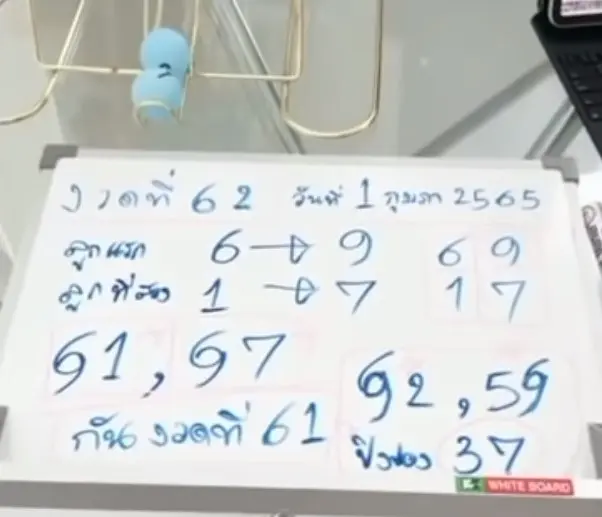 2
งวดที่ 62 วันที่ 1 กุมภา 2565
ลูกแรก 6 → 9 69
ลูกที่สอง 1 → 7 17
91, 97
92, 59
กัน งวดที่ 61
ปิงปอง 37
WHITE BOARD